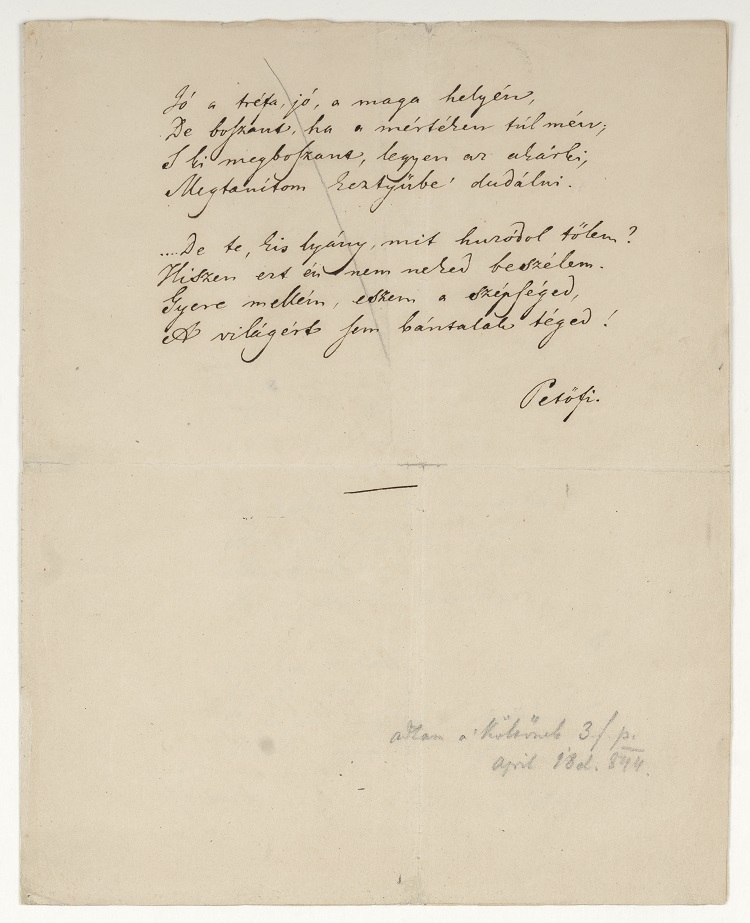 Jó a tréfa, jó, a maga helyén,
De boszant, ha a mértéken túl mén;
S ki megboszant, legyen az akárki,
Megtanítom keztyűbe' dudálni.
....De te, kis lyány, mit huzódol tőlem?
Hiszen ezt én nem neked beszélem.
Gyere mellém, eszem a szépséged,
A világért sem bántalak téged!
Petőfi.
adtam a' Költőnek 3 f p.
april 18d. 844.